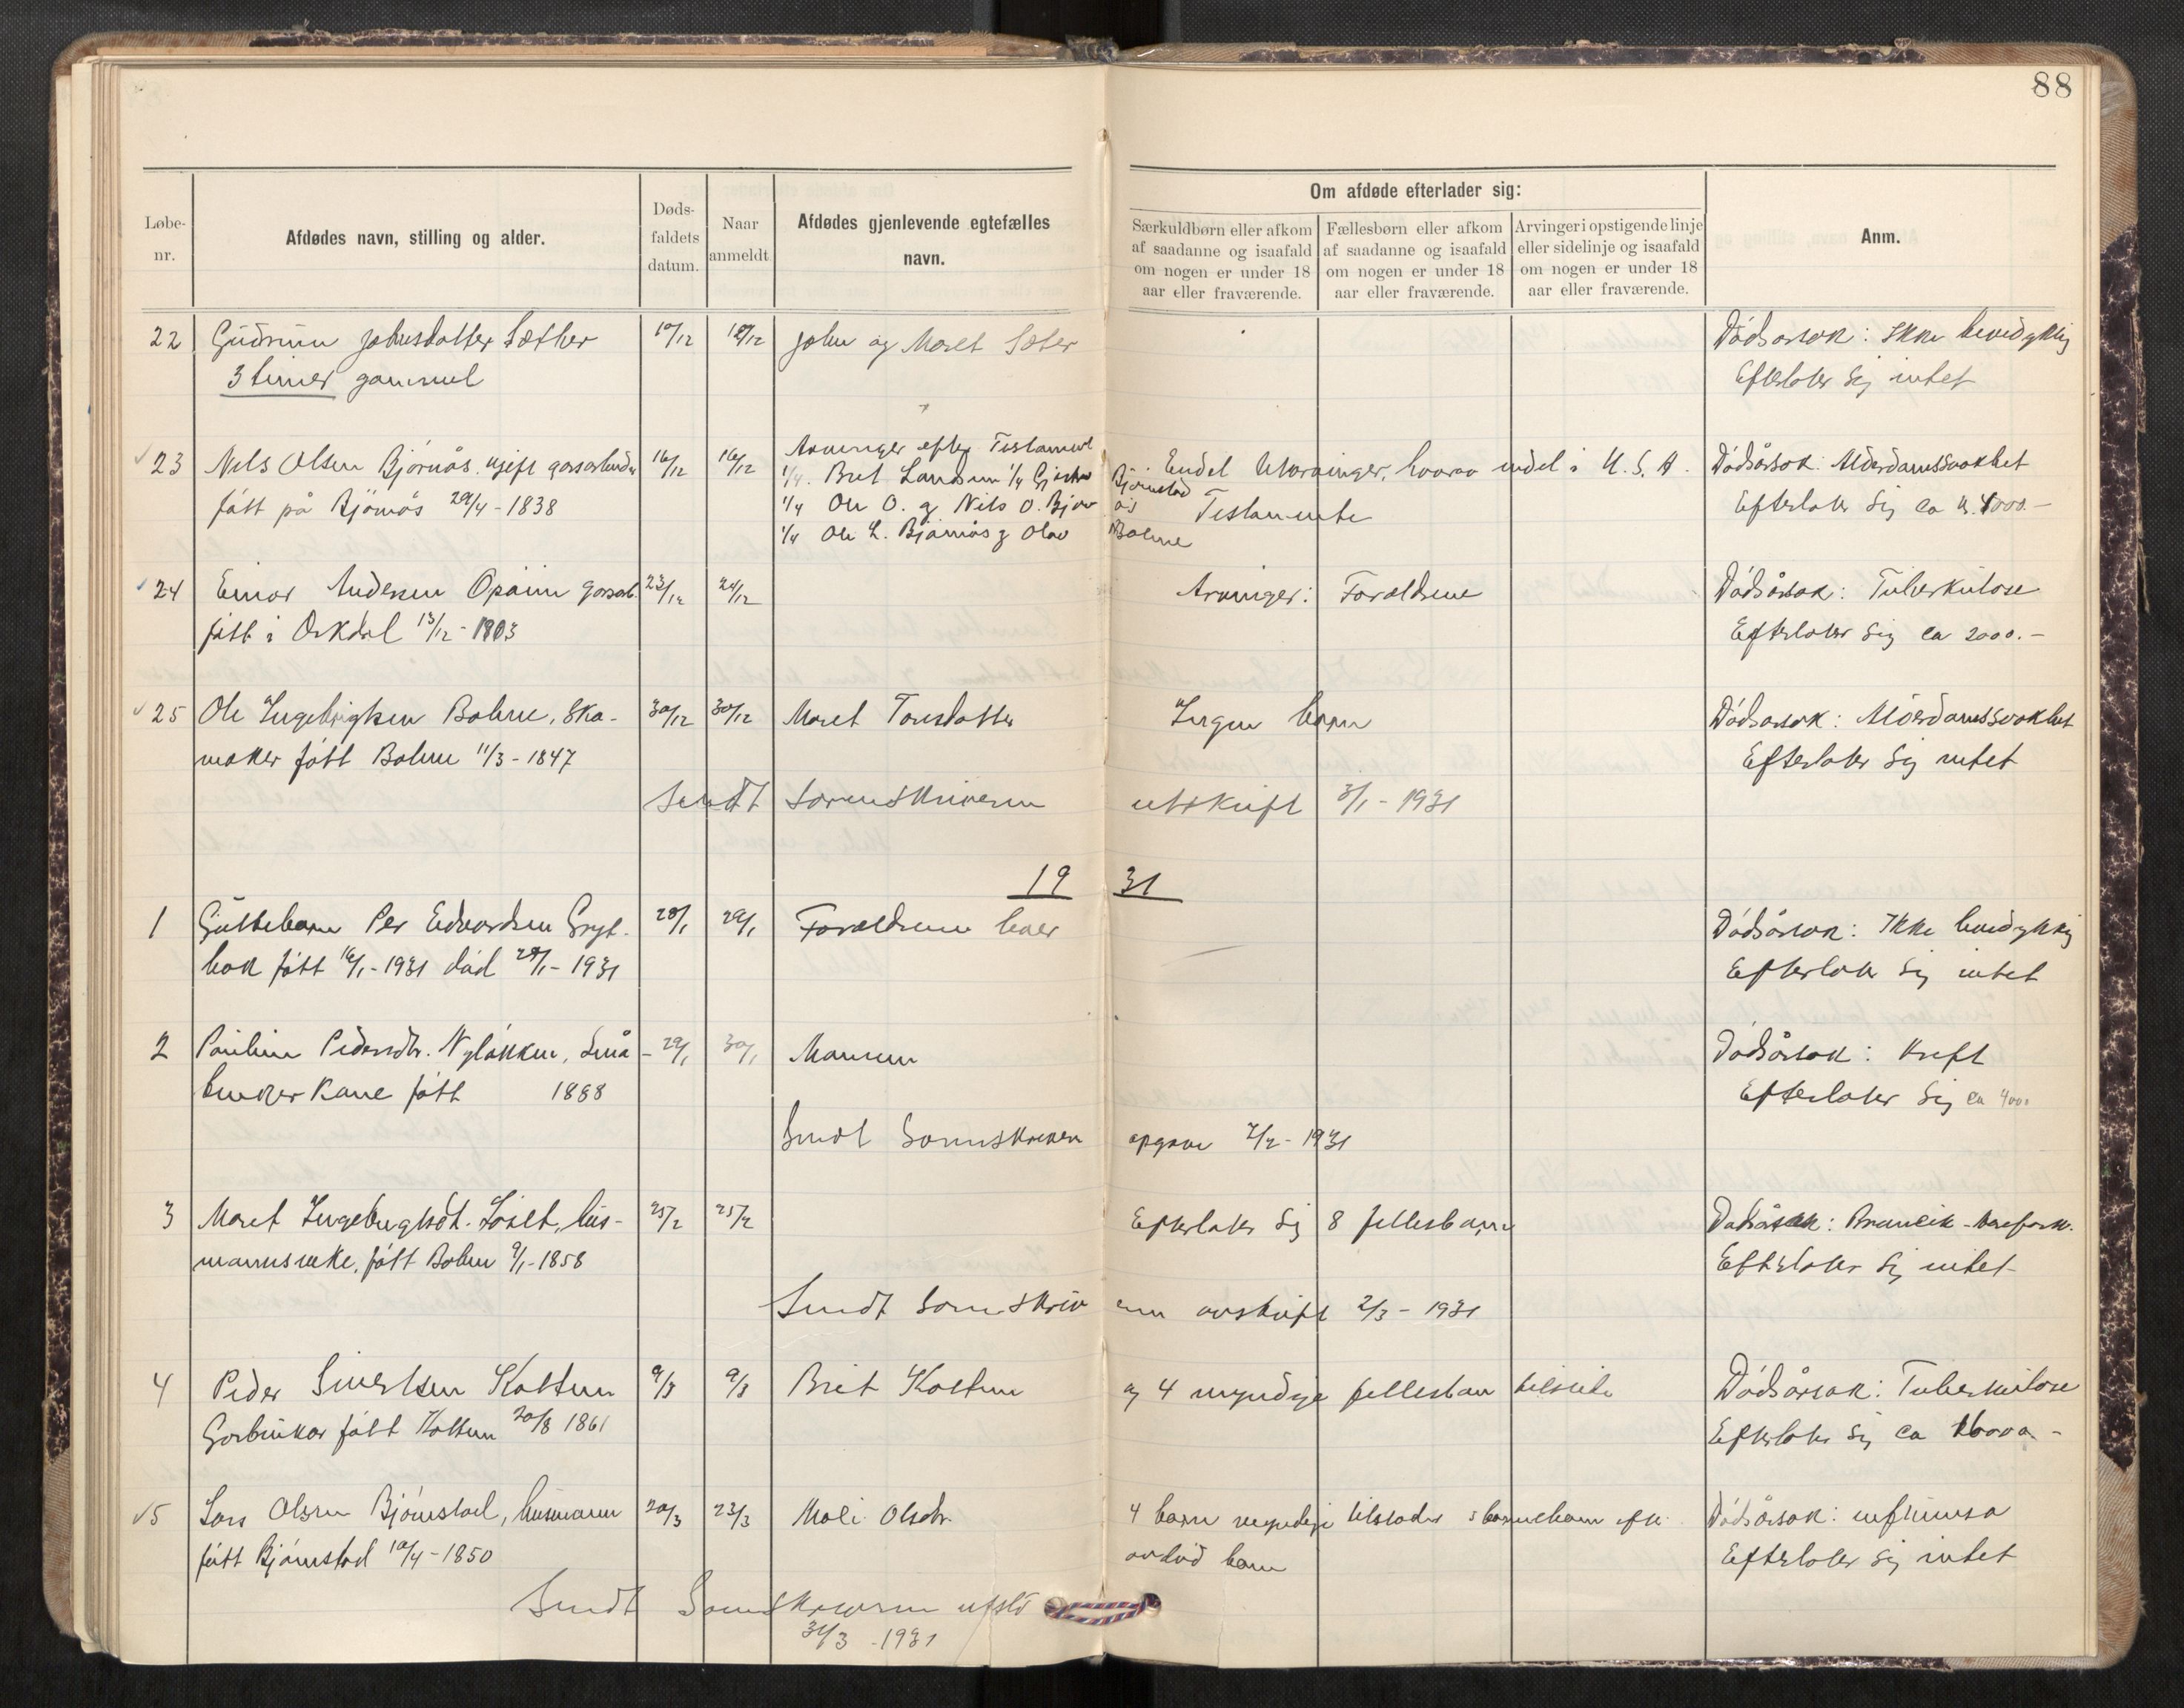 88
Om afdøde efterlader sig:
Løbe-nr.
Afdødes navn, stilling og alder.
Døds-faldets datum.
Naar anmeldt.
Afdødes gjenlevende egtefælles navn.
Særkuldbørn eller afkom af saadanne og isaafald om nogen er under 18 aar eller fraværende.
Fællesbørn eller afkom af saadanne og isaafald om nogen er under 18 aar eller fraværende.
Arvinger i opstigende linje eller sidelinje og isaafald om nogen er under 18 aar eller fraværende.
Anm.
22 Gudrun Johnsdatter Sæther 10/12 10/12 John og Maret Sæter Dödsårsak: Ikke livsdyktig
3 timer gammel Efterlater sig intet
Arvinger efter Testament
23 Nils Olsen Bjørnås, ugift 16/12 16/12 1/4 Brit 1/4 Bjørnstad Endel Utarvinger, hvorav endel i U.S.A. Dödsårsak: Alderdomssvakhet
fött på Bjørnås 29/4-1838 1/4 Ole O. og Nils O. Bjørnås Testamente Efterlater sig ca kr. 4000.-
1/4 Ole L. Bjørnås og Olav Bolme
24 Einar Andersen Opøien gårdarb. 23/12 24/12 Arvinger: Foreldrene Dödsårsak: Tuberkulose
fött i Orkdal 13/12-1903 Efterlater sig ca 2000.-
25 Ole Ingebrigtsen Bolme, sko- 30/12 30/12 Maret Torsdatter Ingen barn Dödsårsak: Alderdomssvakhet
maker fött Bolme 11/3-1847 Efterlater sig intet
Sendt Sorenskriveren utskrift 3/1-1931
1931
1 Guttebarn Per Edvardsen Gryt- 28/1 29/1 Foreldrene lever Dödsårsak: Ikke livsdyktig
bak fött 16/1-1931 död 28/1-1931 Efterlater sig intet
2 Pauline Pedersdtr. Nyløkken, Små- 29/1 30/1 Mannen Dödsårsak: Kreft
bruker Kone fött 1888 Efterlater sig ca 4000
Sendt Sorenskriveren opgave 2/2-1931
3 Maret Ingebrigtsdt. Löset, hus- 25/2 25/2 Efterlater sig 8 fellesbarn Dödsårsak:
mannsenke, fött Bolme 9/1-1858 Efterlater sig intet
Sendt Sorenskriveren avskrift 2/3-1931
4 Peder Sivertsen Kattum 9/3 9/3 Brit Kattum og 4 myndige fellesbarn tilstede Dödsårsak: Tuberkulose
Gårdbruker fött Kattum 20/8 1861 Efterlater sig ca
5 Lars Olsen Bjørnstad, husmann 20/3 23/3 Mali Olsdtr. 4 barn myndige tilstede barnebarn efter Dödsårsak: influensa
fött Bjørnstad 10/4-1850 avdöd barn Efterlater sig intet
Sendt Sorenskriveren
31/3-1931